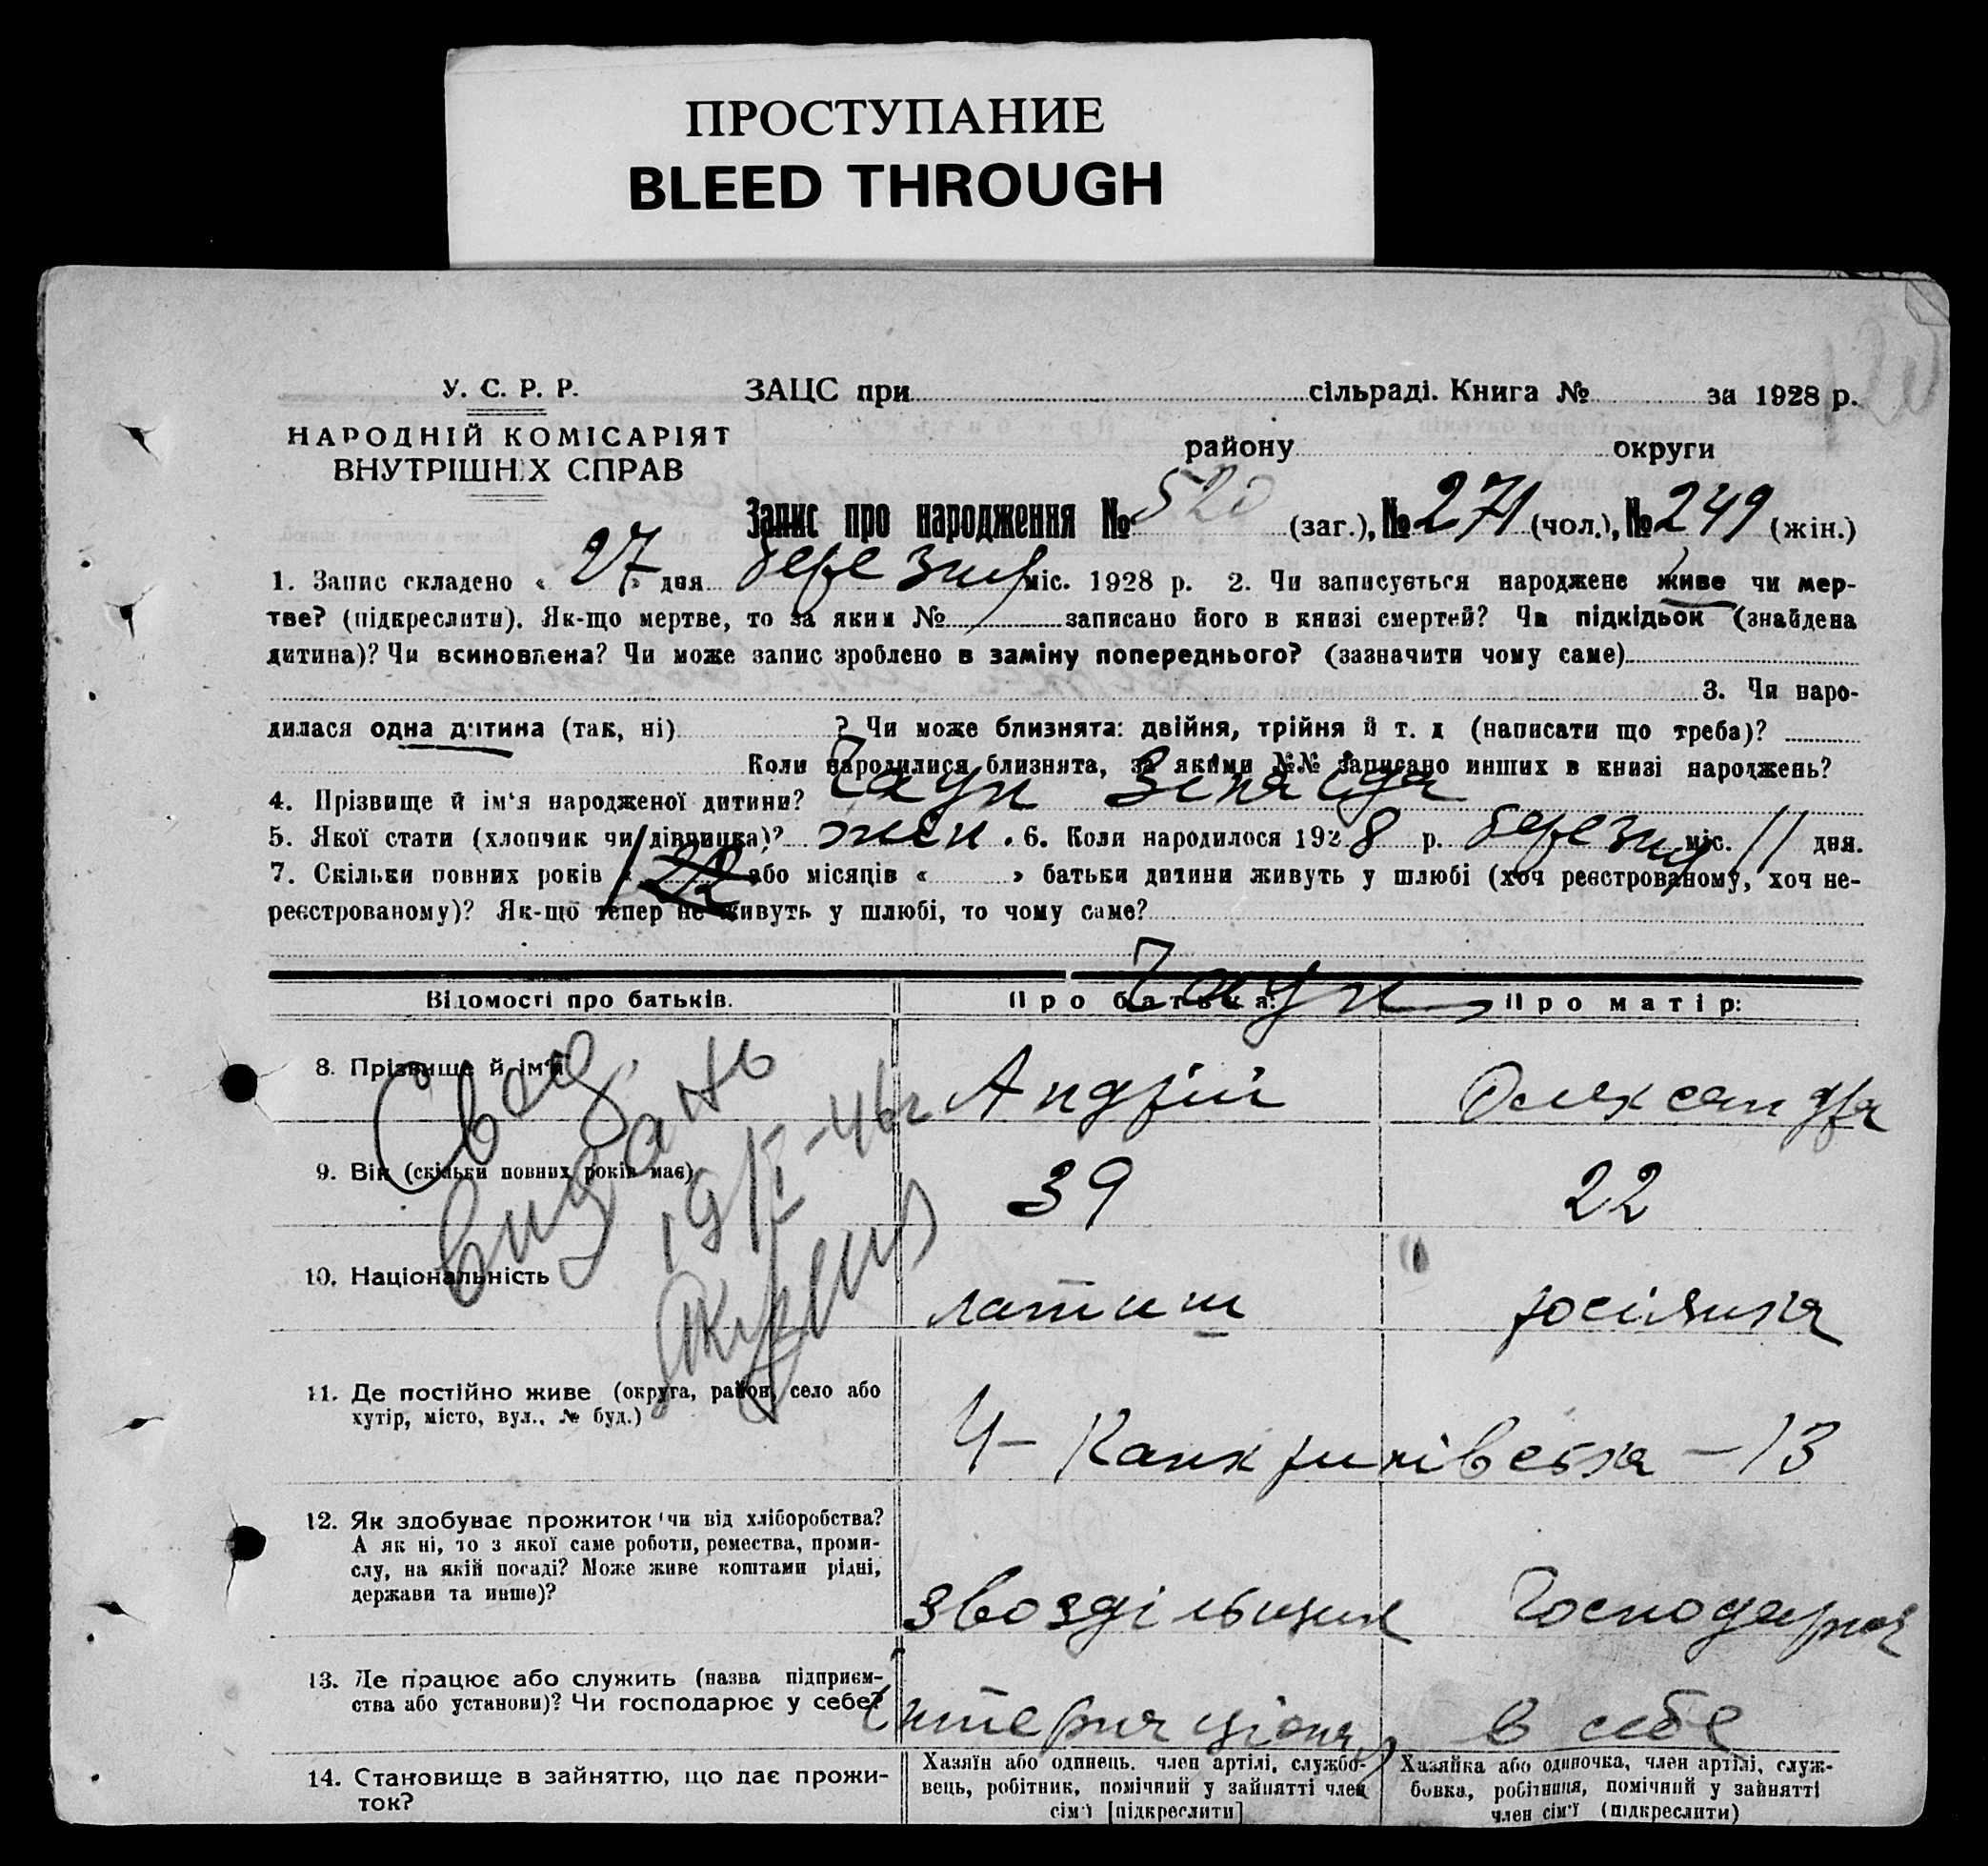 ПРОСТУПАНИЕ
BLEED THROUGH
У. С. Р. Р.
НАРОДНІЙ КОМІСАРІЯТ
ВНУТРІШНІХ СПРАВ
ЗАЦС при сільраді. Книга № за 1928 р.
району округи
Запис про народження № 520 (заг.), № 271 (чол.), № 249 (жін.)
1. Запис складено « 27 » дня березня міс. 1928 р. 2. Чи записується народжене живе чи мер-
тве? (підкреслити). Як-що мертве, то за яким № записано його в книзі смертей? Чи підкідьок (знайдена
дитина)? Чи всиновлена? Чи може запис зроблено в заміну попереднього? (зазначити чому саме)
3. Чи наро-
дилася одна дитина (так, ні) ? Чи може близнята: двійня, трійня й т. д (написати що треба)?
Коли народилися близнята, за якими №№ записано инших в книзі народжень?
4. Прізвище й ім'я народженої дитини? Зінаїда
5. Якої стати (хлопчик чи дівчинка)? жін. 6. Коли народилося 1928 р. березня міс. 11 дня.
7. Скільки повних років « або місяців « » батьки дитини живуть у шлюбі (хоч реєстрованому, хоч не-
реєстрованому)? Як-що тепер не живуть у шлюбі, то чому саме?
Відомості про батьків. Про батька: Про матір:
8. Прізвище й ім'я Андрій Олександра
9. Вік (скільки повних років має) 39 22
10. Національність латиш росіянка
11. Де постійно живе (округа, район, село або
хутір, місто, вул., № буд.)
Ч- Канкринівська - 13
12. Як здобуває прожиток чи від хліборобства?
А як ні, то з якої саме роботи, ремества, проми-
слу, на якій посаді? Може живе коштами рідні,
держави та инше)?
звоздільщик Господарка
13. Де працює або служить (назва підприєм-
ства або установи)? Чи господарює у себе?
в себе
14. Становище в зайняттю, що дає прожи-
ток?
Хазяїн або одинець, член артілі, службо-
вець, робітник, помічний у зайнятті член
сім'ї [підкреслити]
Хазяйка або одиночка, член артілі, служ-
бовка, робітниця, помічний у зайнятті
член сім'ї (підкреслити)
Свед.
видано
19/I-46г